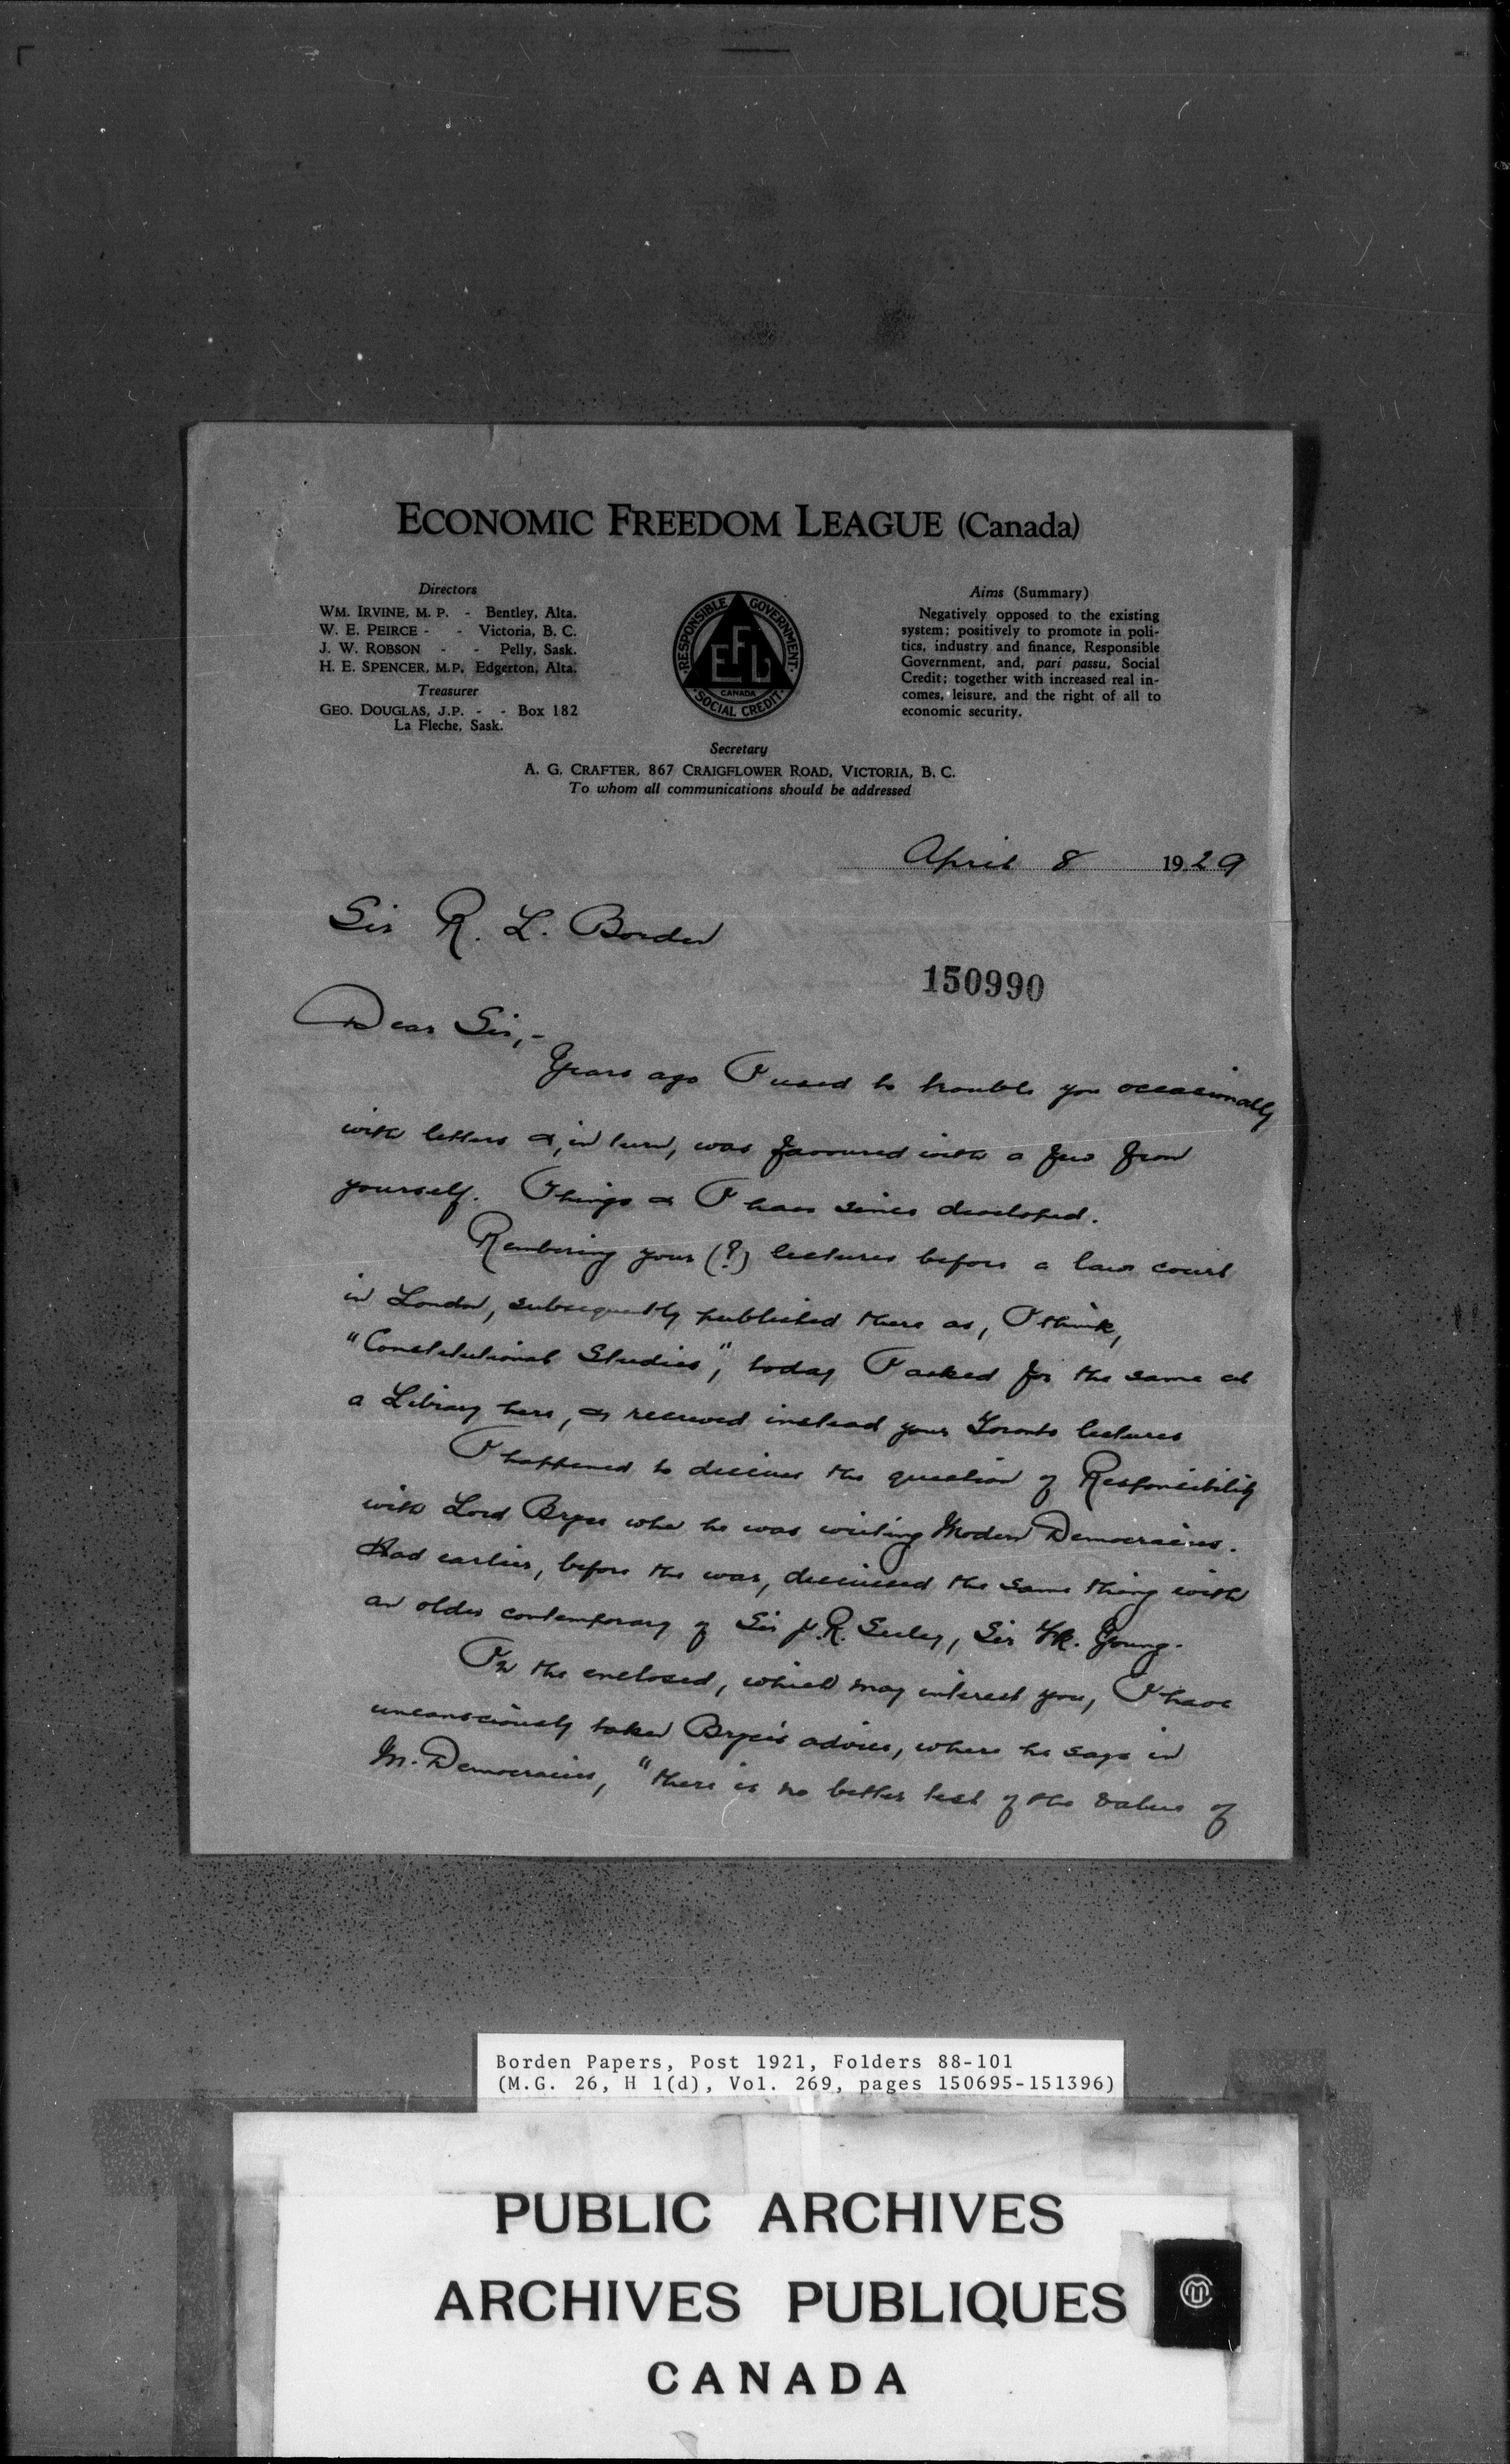 ECONOMIC FREEDOM LEAGUE (Canada)
Directors
WM. IRVINE, M. P. - Bentley, Alta.
W. E. PEIRCE - - Victoria, B. C.
J. W. ROBSON - - Pelly, Sask.
H. E. SPENCER, M.P. Edgerton, Alta.
Treasurer
GEO. DOUGLAS, J.P. - - Box 182
La Fleche, Sask.
RESPONSIBLE GOVERNMENT
EFL
CANADA
SOCIAL CREDIT
Aims (Summary)
Negatively opposed to the existing
system; positively to promote in poli-
tics, industry and finance, Responsible
Government, and, pari passu, Social
Credit; together with increased real in-
comes, leisure, and the right of all to
economic security.
Secretary
A. G. CRAFTER, 867 CRAIGFLOWER ROAD, VICTORIA, B. C.
To whom all communications should be addressed
April 8 1929
Sir R. L. Borden
150990
Dear Sir,-
Years ago I used to trouble you occasionally
with letters &, in turn, was favoured with a few from
yourself. Things & I have since developed.
Rembering your (?) lectures before a law court
in London, subsequently published there as, I think,
"Constitutional Studies", today I asked for the same at
a Library here, & received instead your Toronto lectures
I happened to discuss the question of Responsibility
with Lord Bryce when he was writing Modern Democracies.
Had earlier, before the war, discussed the same thing with
an older contemporary of Sir J. R. Seeley, Sir Fk. Young.
In the enclosed, which may interest you, I have
unconsciously taken Bryce's advice, where he says in
M. Democracies, "there is no better test of the value of
Borden Papers, Post 1921, Folders 88-101
(M.G. 26, H 1(d), Vol. 269, pages 150695-151396)
PUBLIC ARCHIVES
ARCHIVES PUBLIQUES
CANADA